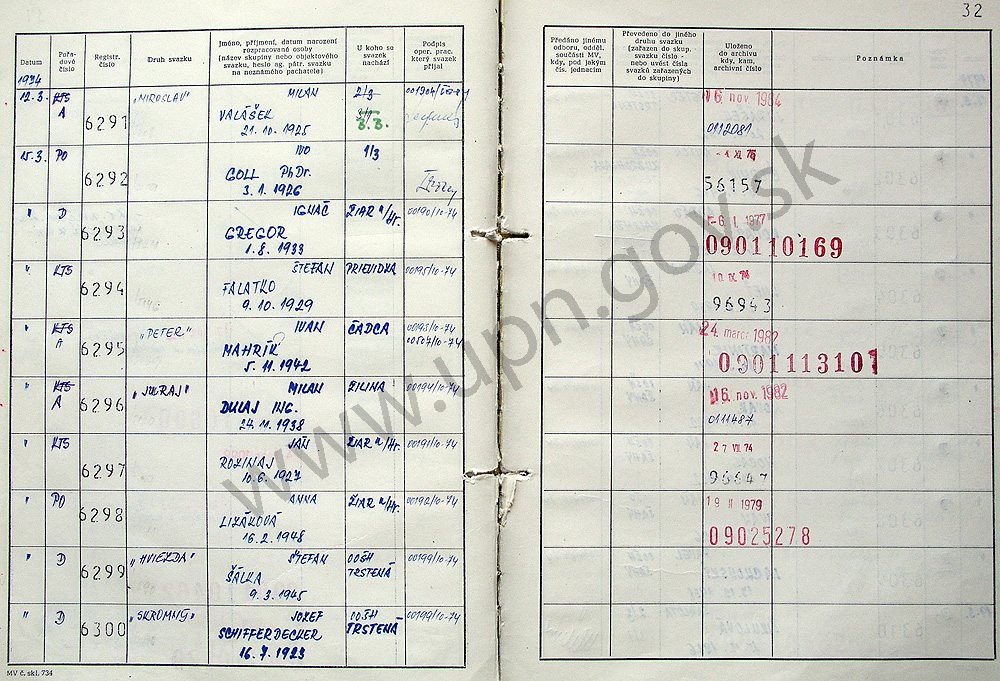 32
Datum
Pořa-
dové
číslo
Registr.
číslo
Druh svazku
Jméno, příjmení, datum narození
rozpracované osoby
(název skupiny nebo objektového
svazku, heslo ag. pátr. svazku
na neznámého pachatele)
U koho se
svazek
nachází
Podpis
oper. prac.
který svazek
přijal
Předáno jinému
odboru, odděl.
součásti MV,
kdy, pod jakým
čís. jednacím
Převedeno do jiného
druhu svazku
(zařazen do skup.
svazku číslo -
nebo uvést čísla
svazků zařazených
do skupiny)
Uloženo
do archivu
kdy, kam,
archivní číslo
Poznámka
1974
12.3. KTS A 6291 „MIROSLAV" MILAN
VALÁŠEK
21. 10. 1925
2/3
3.3.
16. nov. 1984
0112081
15.3. PO 6292 IVO
GOLL PhDr.
3. 1. 1926
1/3
-4. XI. 76
56157
" D 6293 IGNÁC
GREGOR
1. 8. 1933
ŽIAR n/Hr. 00190/10-74
-6. I. 1977
090110169
" KTS 6294 ŠTEFAN
FALATKO
9. 10. 1929
PRIEVIDZA 00195/10-74
10. IX. 74
96943
" KTS A 6295 „PETER" IVAN
MAHRÍK
5. 11. 1942
ČADCA 00195/10-74
00507/10-74
24. marec 1982
0901113101
" KTS A 6296 „JURAJ" MILAN
DULAJ ING.
24. 11. 1938
ŽILINA 00194/10-74
16. nov. 1982
0111487
" KTS 6297 JÁN
ROZINAJ
10. 6. 1927
ŽIAR n/Hr. 00191/10-74
27 VII. 74
96647
" PO 6298 ANNA
LIZÁKOVÁ
16. 2. 1948
ŽIAR n/Hr. 00192/10-74
19 II 1979
09025278
" D 6299 „HVIEZDA" ŠTEFAN
ŠÁLKA
9. 3. 1945
OOŠH
TRSTENÁ
00199/10-74
" D 6300 „SKROMNÝ" JOZEF
SCHIFFERDECKER
16. 7. 1923
OOŠH
TRSTENÁ
00199/10-74
MV č. skl. 734
www.upn.gov.sk